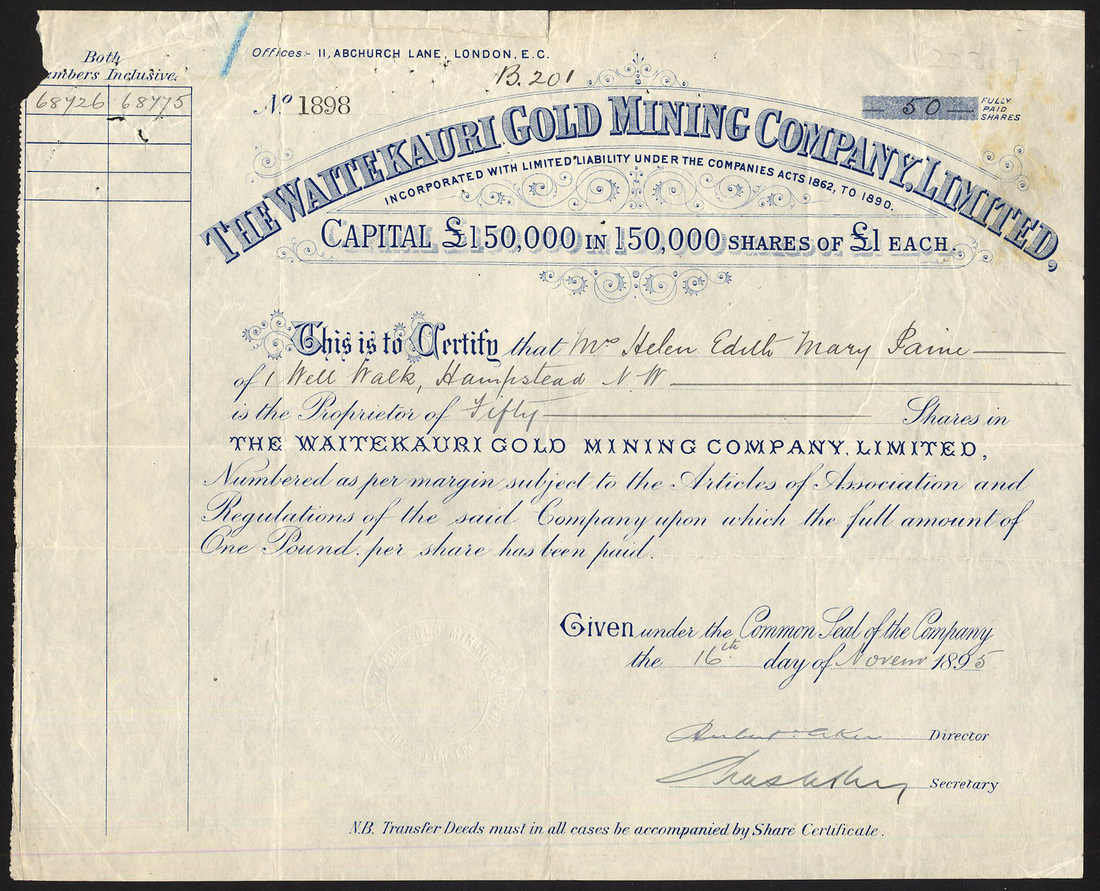 Offices:- 11, ABCHURCH LANE, LONDON, E.C.
B. 201
Both
mbers Inclusive.
68726 68775
No 1898
50 FULLY PAID SHARES
THE WAITEKAURI GOLD MINING COMPANY, LIMITED,
INCORPORATED WITH LIMITED LIABILITY UNDER THE COMPANIES ACTS 1862, TO 1890.
CAPITAL £150,000 IN 150,000 SHARES OF £1 EACH.
This is to Certify that Mrs Helen Edith Mary Paine
of 1 Well Walk, Hampstead N W
is the Proprietor of Fifty Shares in
THE WAITEKAURI GOLD MINING COMPANY, LIMITED,
Numbered as per margin subject to the Articles of Association and
Regulations of the said Company upon which the full amount of
One Pound. per share has been paid.
Given under the Common Seal of the Company
the 16th day of Novemr 1895
Director
Secretary
N.B. Transfer Deeds must in all cases be accompanied by Share Certificate.